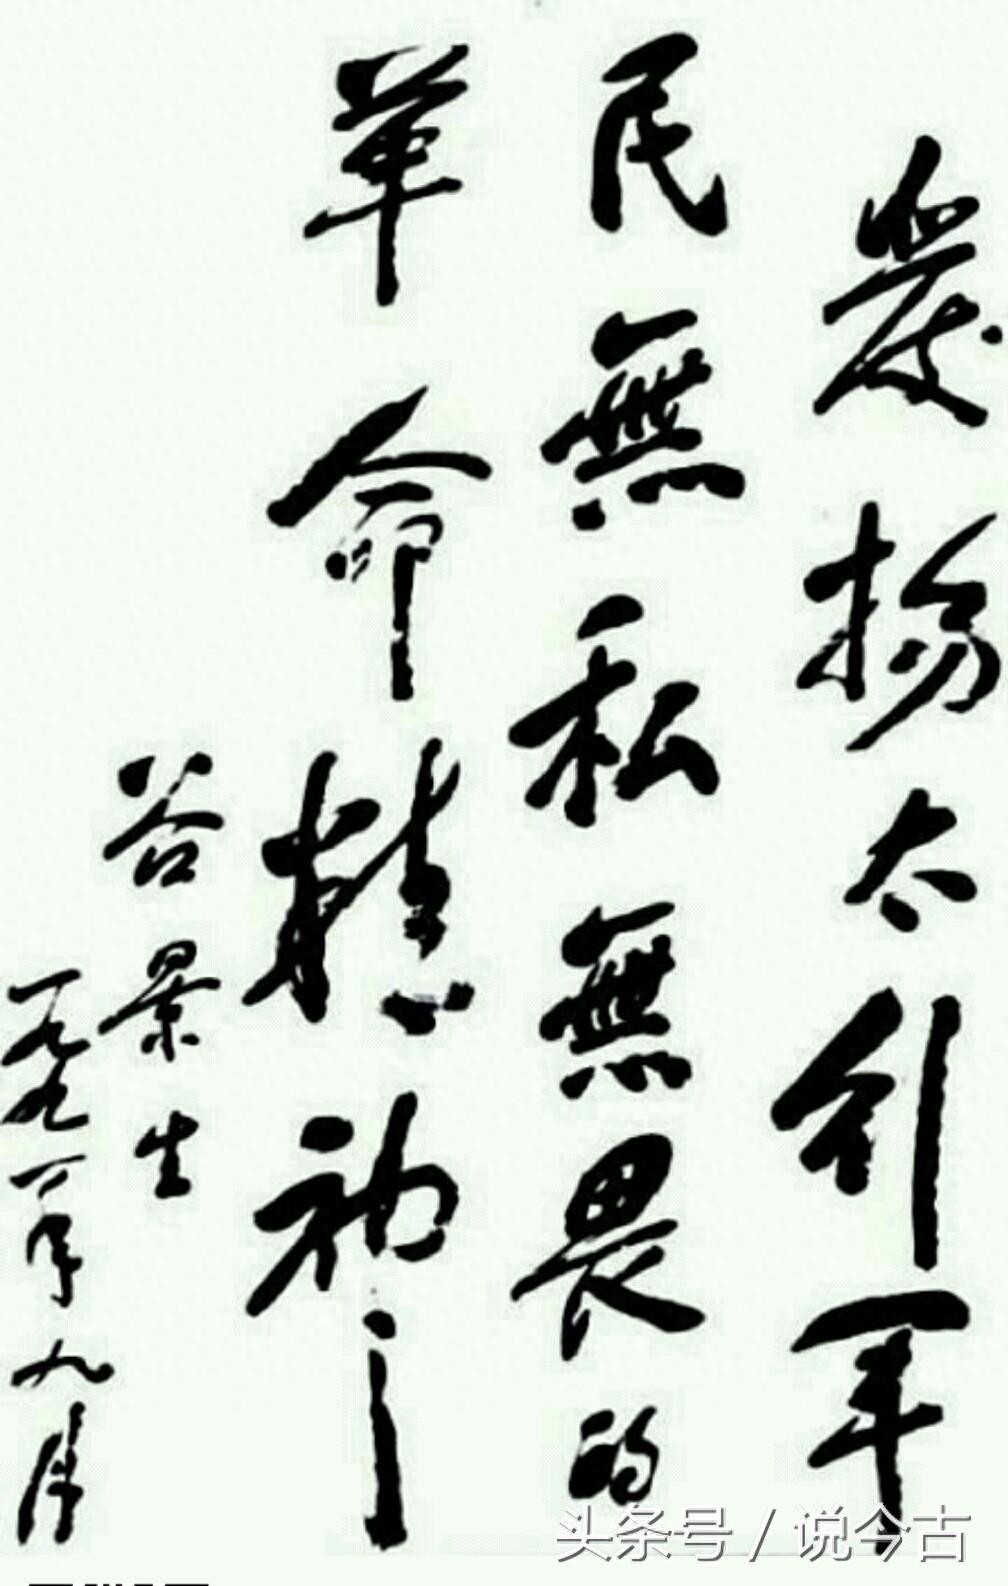 发扬太行军
民無私無畏的
革命精神
谷景生
一九九一年九月
头条号 / 说今古